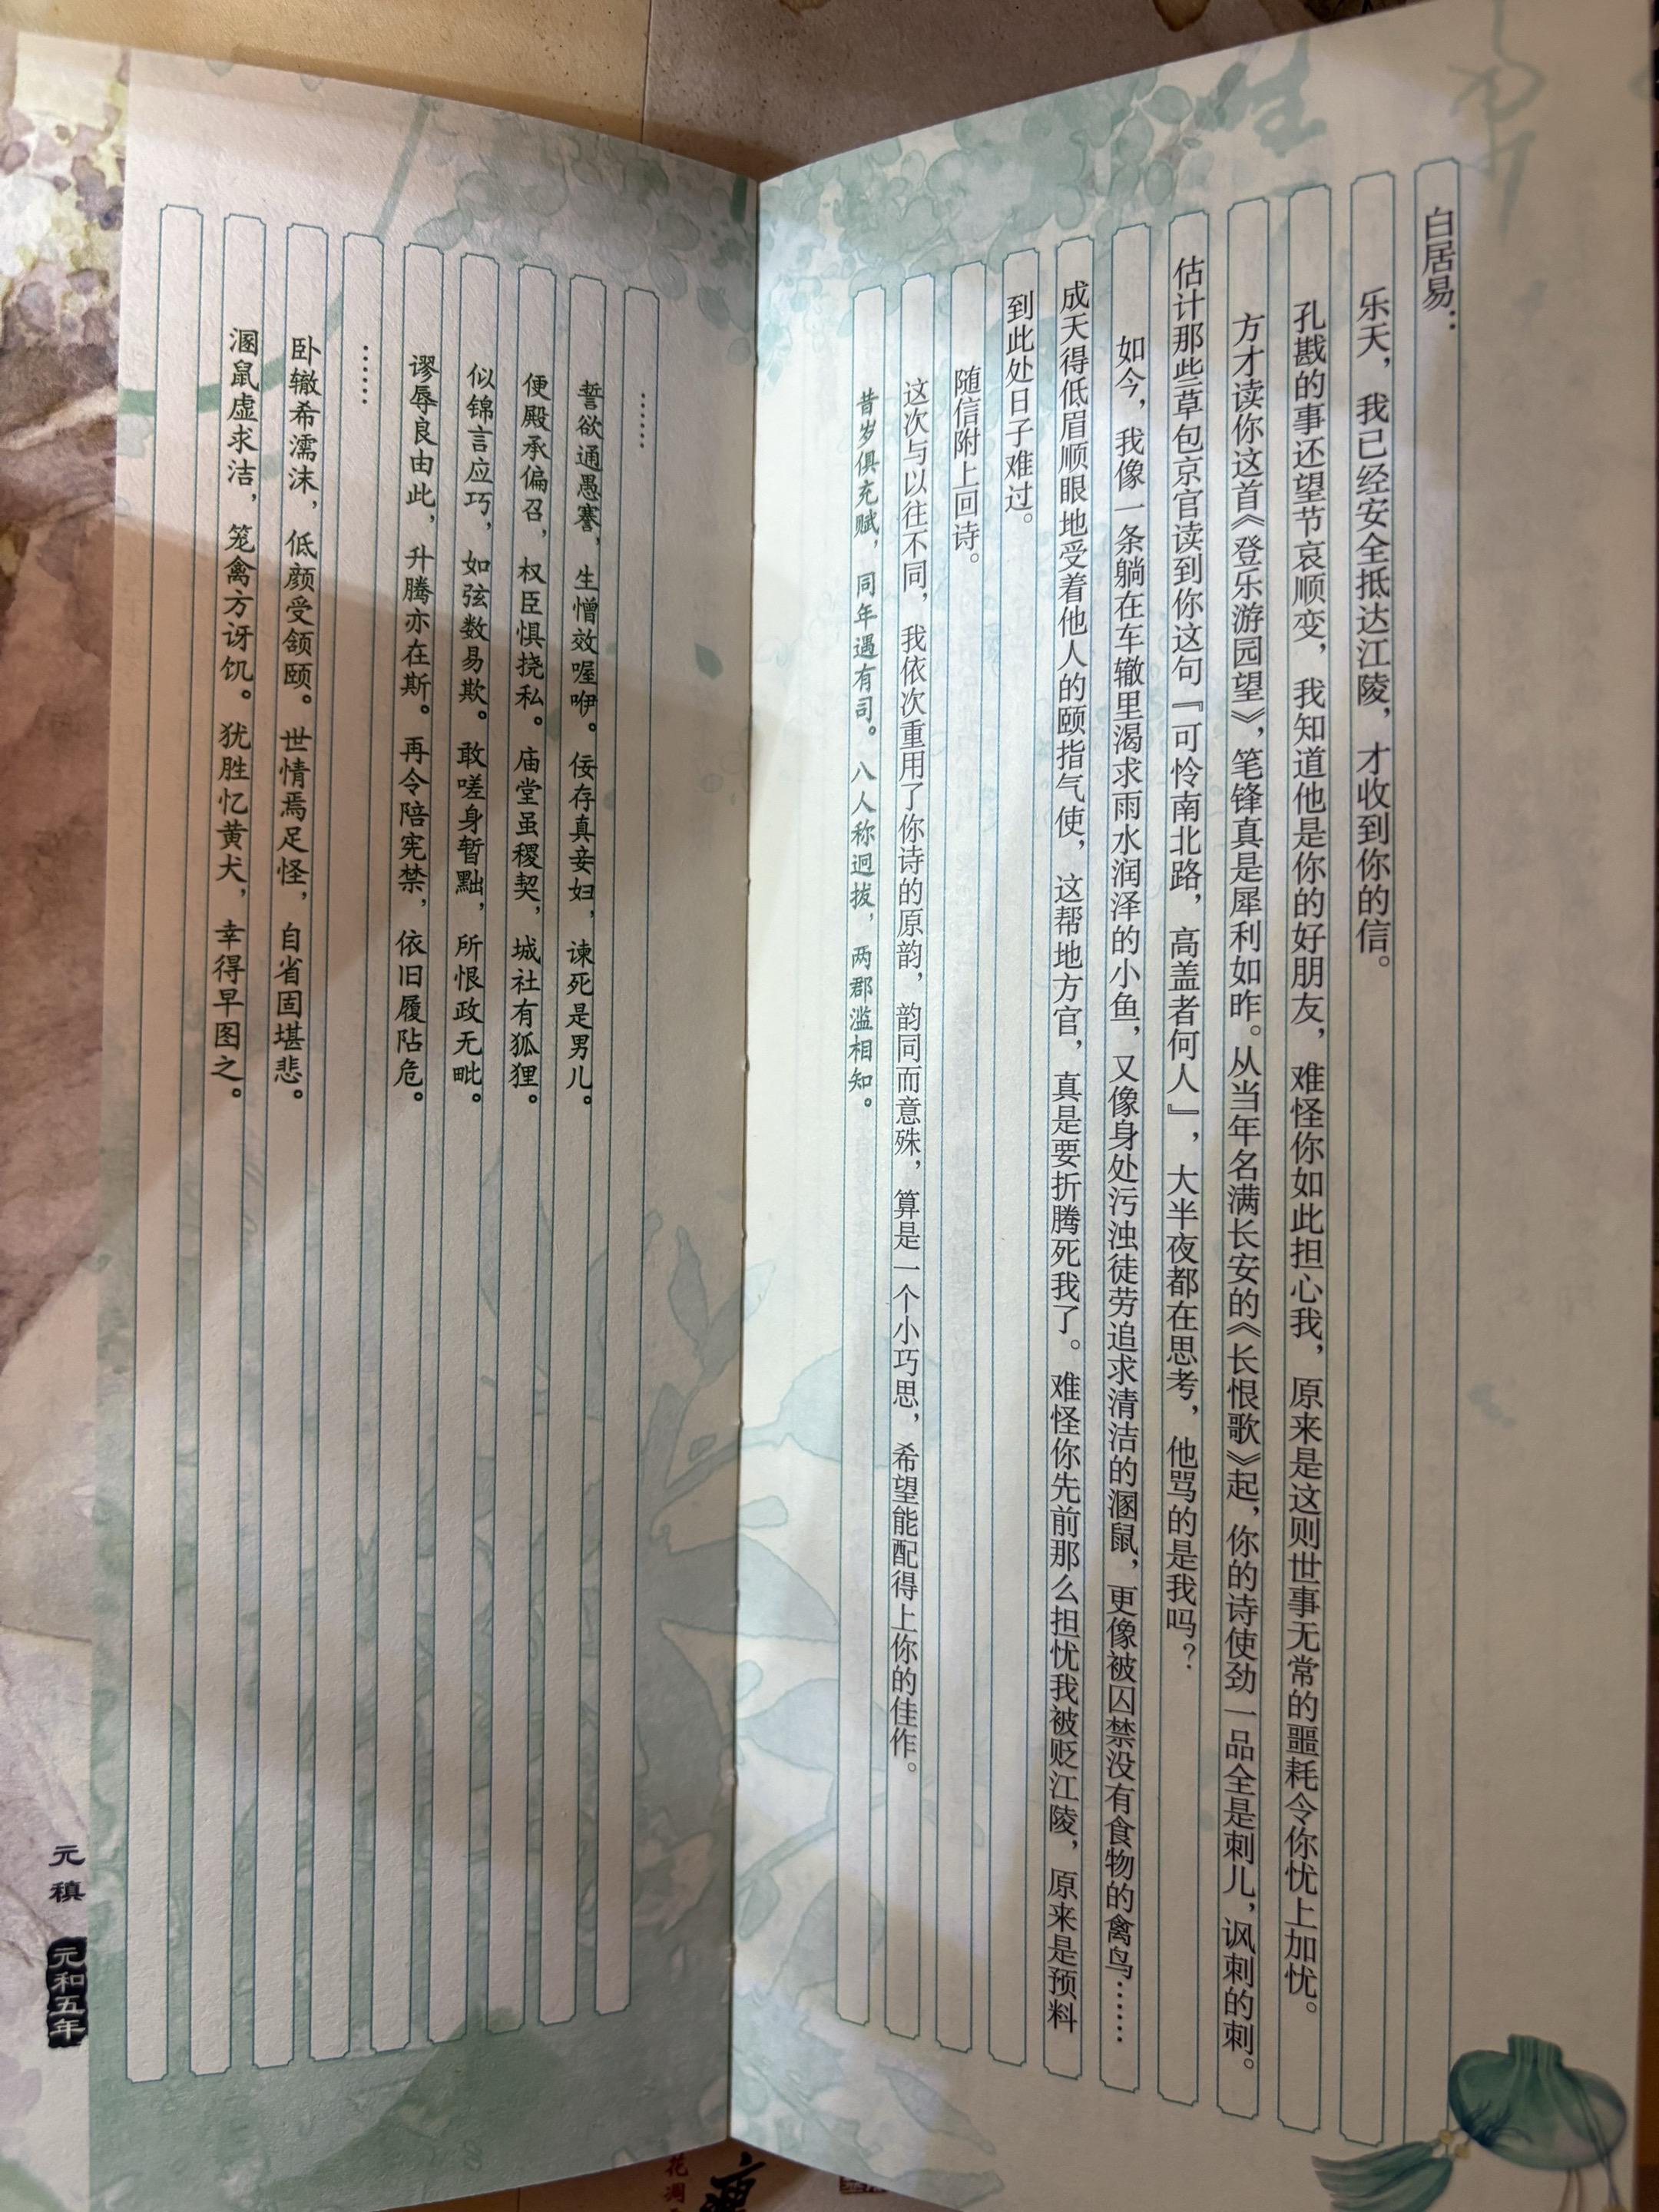 白居易：
乐天，我已经安全抵达江陵，才收到你的信。
孔戡的事还望节哀顺变，我知道他是你的好朋友，难怪你如此担心我，原来是这则世事无常的噩耗令你忧上加忧。
方才读你这首《登乐游园望》，笔锋真是犀利如昨。从当年名满长安的《长恨歌》起，你的诗使劲一品全是刺儿，讽刺的刺。
估计那些草包京官读到你这句『可怜南北路，高盖者何人』，大半夜都在思考，他骂的是我吗？
如今，我像一条躺在车辙里渴求雨水润泽的小鱼，又像身处污浊徒劳追求清洁的溷鼠，更像被囚禁没有食物的禽鸟……
成天得低眉顺眼地受着他人的颐指气使，这帮地方官，真是要折腾死我了。难怪你先前那么担忧我被贬江陵，原来是预料
到此处日子难过。
随信附上回诗。
这次与以往不同，我依次重用了你诗的原韵，韵同而意殊，算是一个小巧思，希望能配得上你的佳作。
昔岁俱充赋，同年遇有司。八人称迥拔，两郡滥相知。
……
誓欲通愚謇，生憎效喔咿。佞存真妾妇，谏死是男儿。
便殿承偏召，权臣惧挠私。庙堂虽稷契，城社有狐狸。
似锦言应巧，如弦数易欺。敢嗟身暂黜，所恨政无毗。
谬辱良由此，升腾亦在斯。再令陪宪禁，依旧履阽危。
……
卧辙希濡沫，低颜受颔颐。世情焉足怪，自省固堪悲。
溷鼠虚求洁，笼禽方讶饥。犹胜忆黄犬，幸得早图之。
元稹
元和五年